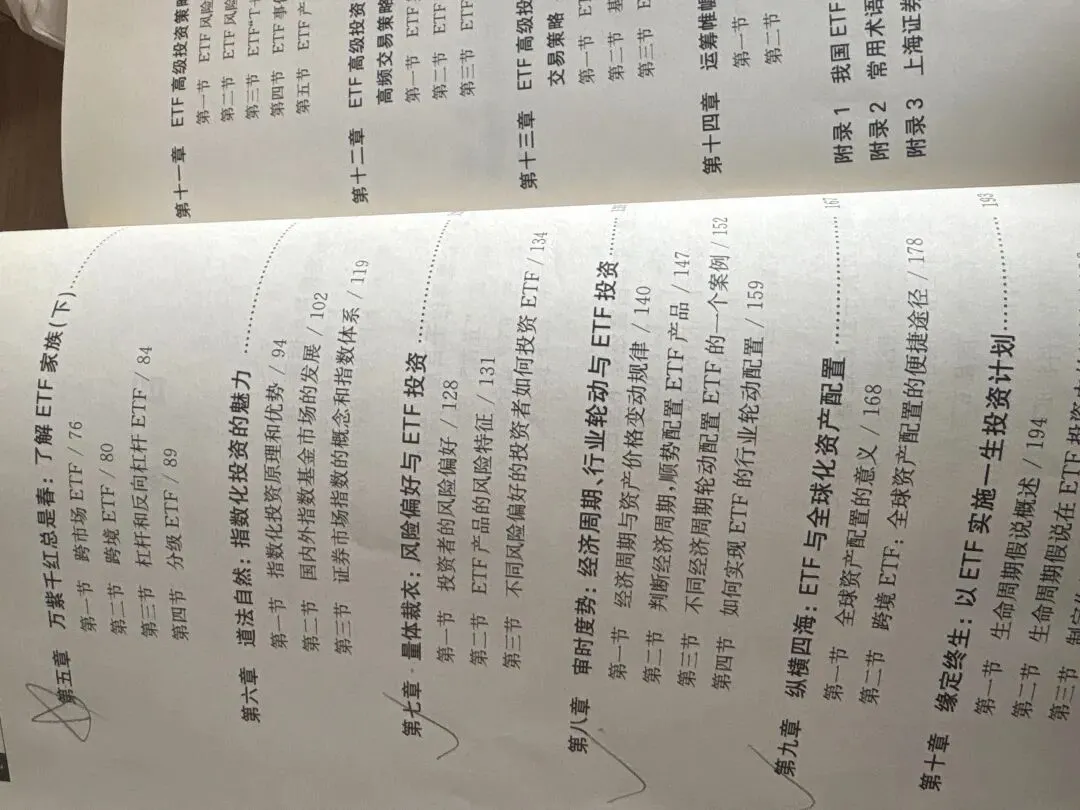 第五章 万紫千红总是春：了解 ETF 家族(下)
第一节 跨市场 ETF / 76
第二节 跨境 ETF / 80
第三节 杠杆和反向杠杆 ETF / 84
第四节 分级 ETF / 89
第六章 道法自然：指数化投资的魅力
第一节 指数化投资原理和优势 / 94
第二节 国内外指数基金市场的发展 / 102
第三节 证券市场指数的概念和指数体系 / 119
第七章 量体裁衣：风险偏好与 ETF 投资
第一节 投资者的风险偏好 / 128
第二节 ETF 产品的风险特征 / 131
第三节 不同风险偏好的投资者如何投资 ETF / 134
第八章 审时度势：经济周期、行业轮动与 ETF 投资
第一节 经济周期与资产价格变动规律 / 140
第二节 判断经济周期，顺势配置 ETF 产品 / 147
第三节 不同经济周期轮动配置 ETF 的一个案例 / 152
第四节 如何实现 ETF 的行业轮动配置 / 159
第九章 纵横四海：ETF 与全球化资产配置 167
第一节 全球资产配置的意义 / 168
第二节 跨境 ETF：全球资产配置的便捷途径 / 178
第十章 缘定终生：以 ETF 实施一生投资计划 193
第一节 生命周期假说概述 / 194
第二节 生命周期假说在 ETF 投资
第三节
第十一章 ETF 高级投资策略
第一节 ETF 风险
第二节 ETF 风险
第三节 ETF“T+
第四节 ETF 事件
第五节 ETF 产
第十二章 ETF 高级投资
高频交易策略
第一节 ETF
第二节 ETF
第三节 ETF
第十三章 ETF 高级投
交易策略
第一节 ET
第二节 基
第三节 E
第十四章 运筹帷幄
第一节
第二节
附录 1 我国 ETF
附录 2 常用术语
附录 3 上海证券